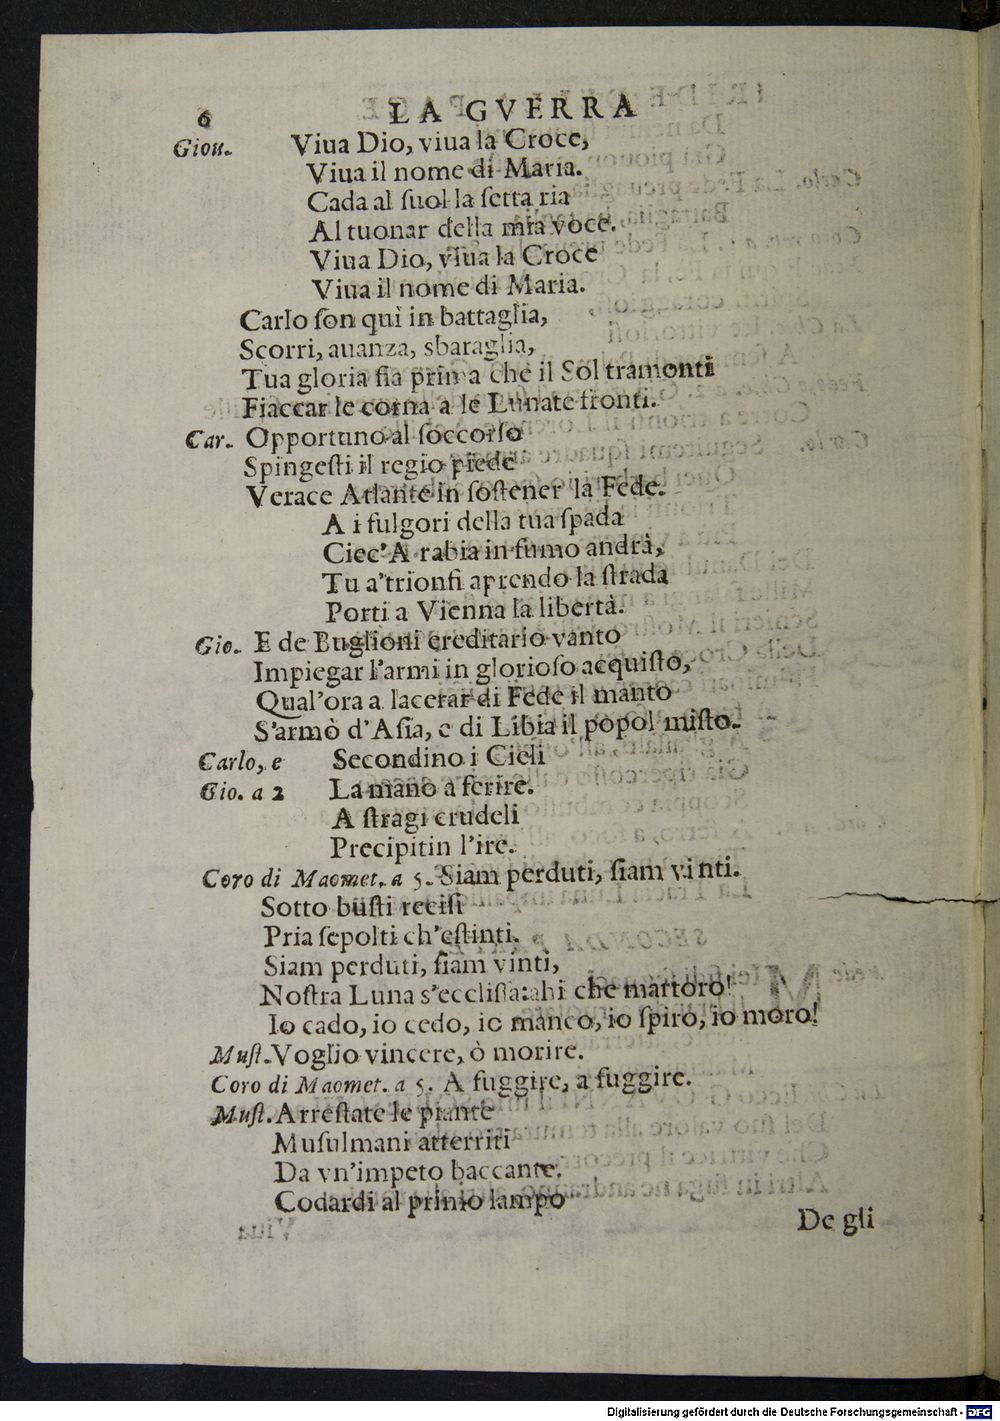 6 LA GVERRA
Giou. Viua Dio, viua la Croce,
Viua il nome di Maria.
Cada al ſuol la ſetta ria
Al tuonar della mia voce.
Viua Dio, viua la Croce
Viua il nome di Maria.
Carlo ſon quì in battaglia,
Scorri, auanza, sbaraglia,
Tua gloria ſia prima che il Sol tramonti
Fiaccar le corna a le Lunate fronti.
Car. Opportuno al ſoccorſo
Spingeſti il regio piede
Verace Atlante in ſoſtener la Fede.
A i fulgori della tua ſpada
Ciec'A rabia in fumo andrà,
Tu a'trionfi aprendo la ſtrada
Porti a Vienna la libertà.
Gio. E de Buglioni ereditario vanto
Impiegar l'armi in glorioſo acquiſto,
Qual'ora a lacerar di Fede il manto
S'armò d'Aſia, e di Libia il popol miſto.
Carlo, e Secondino i Cieli
Gio. a 2 La mano a ferire.
A ſtragi crudeli
Precipitin l'ire.
Coro di Maomet. a 5. Siam perduti, ſiam vinti.
Sotto buſti reciſi
Pria ſepolti ch'eſtinti.
Siam perduti, ſiam vinti,
Noſtra Luna s'ecclissa: ahi che martoro!
Io cado, io cedo, io manco, io ſpiro, io moro!
Muſt. Voglio vincere, ò morire.
Coro di Maomet. a 5. A fuggire, a fuggire.
Muſt. Arreſtate le piante
Muſulmani atterriti
Da vn'impeto baccante.
Codardi al primo lampo
De gli
Digitalisierung gefördert durch die Deutsche Forschungsgemeinschaft - DFG